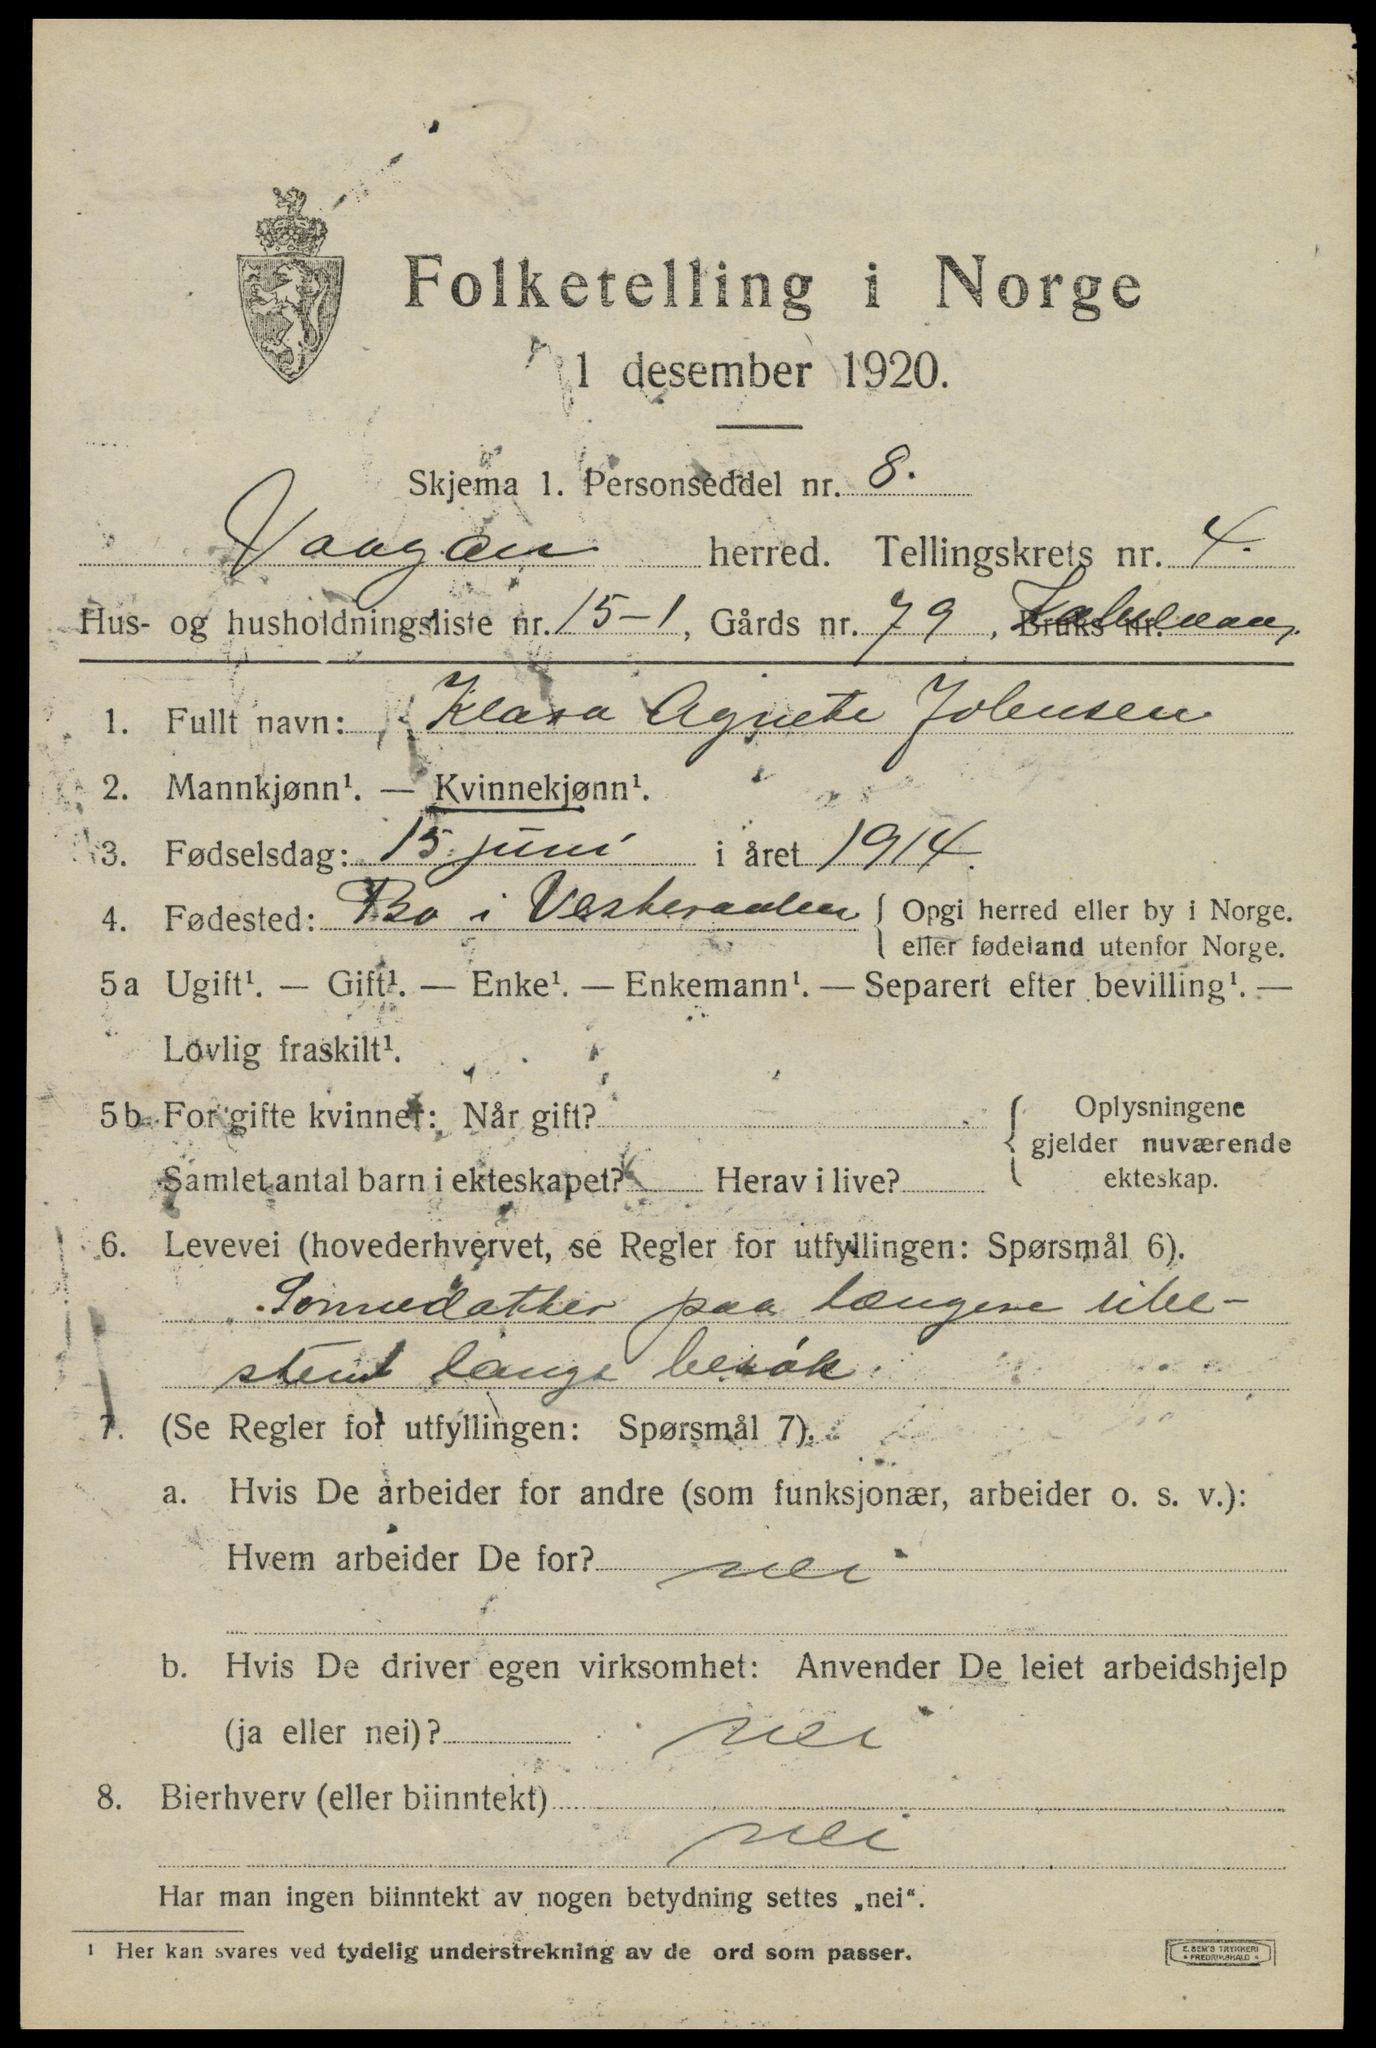 Folketelling i Norge
1 desember 1920.
Skjema 1. Personseddel nr. 8.
Vaagan herred. Tellingskrets nr. 4.
Hus- og husholdningsliste nr. 15-1, Gårds nr. 79, Bruks nr.
1. Fullt navn: Klara Agnete Johnsen
2. Mannkjønn¹. — Kvinnekjønn¹.
3. Fødselsdag: 15 juni i året 1914.
4. Fødested: Bø i Vesteraalen { Opgi herred eller by i Norge.
eller fødeland utenfor Norge.
5a Ugift¹. — Gift¹. — Enke¹. — Enkemann¹. — Separert efter bevilling¹. —
Lovlig fraskilt¹.
5b For gifte kvinner: Når gift? { Oplysningene
gjelder nuværende
Samlet antal barn i ekteskapet? Herav i live? ekteskap.
6. Levevei (hovederhvervet, se Regler for utfyllingen: Spørsmål 6).
Sønnedatter paa længere ube-
stemt langt besøk.
7. (Se Regler for utfyllingen: Spørsmål 7).
a. Hvis De arbeider for andre (som funksjonær, arbeider o. s. v.):
Hvem arbeider De for? nei
b. Hvis De driver egen virksomhet: Anvender De leiet arbeidshjelp
(ja eller nei)? nei
8. Bierhverv (eller biinntekt)
nei
Har man ingen biinntekt av nogen betydning settes „nei“.
¹ Her kan svares ved tydelig understrekning av de ord som passer.
E. SEM'S TRYKKERI
FREDRIKSHALD